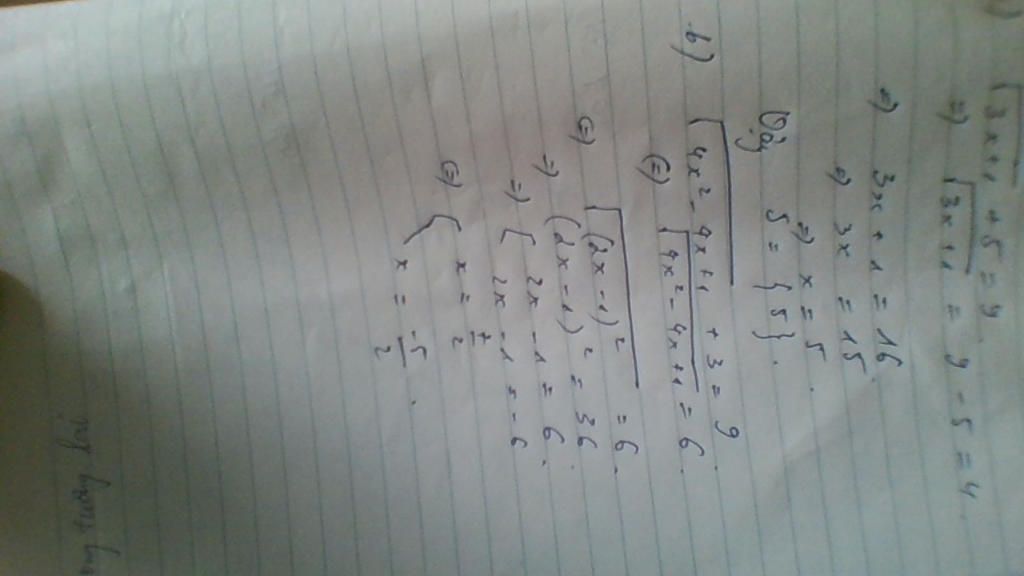 a) √(3x+1) + 5 = 9
=) √(3x+1) = 9 - 5 = 4
=) 3x + 1 = 16
=) 3x = 15
=) x = 5.
Vậy S = { 5 }.
b) √(4x² - 4x + 1) + 3 = 9
(=) √(4x² - 4x + 1) = 6.
(=) √((2x - 1)²) = 6.
=) (2x - 1)² = 36
=) [ 2x - 1 = 6.
2x - 1 = - 6
(=) { x = 7/2
x = -5/2 .
tương lai